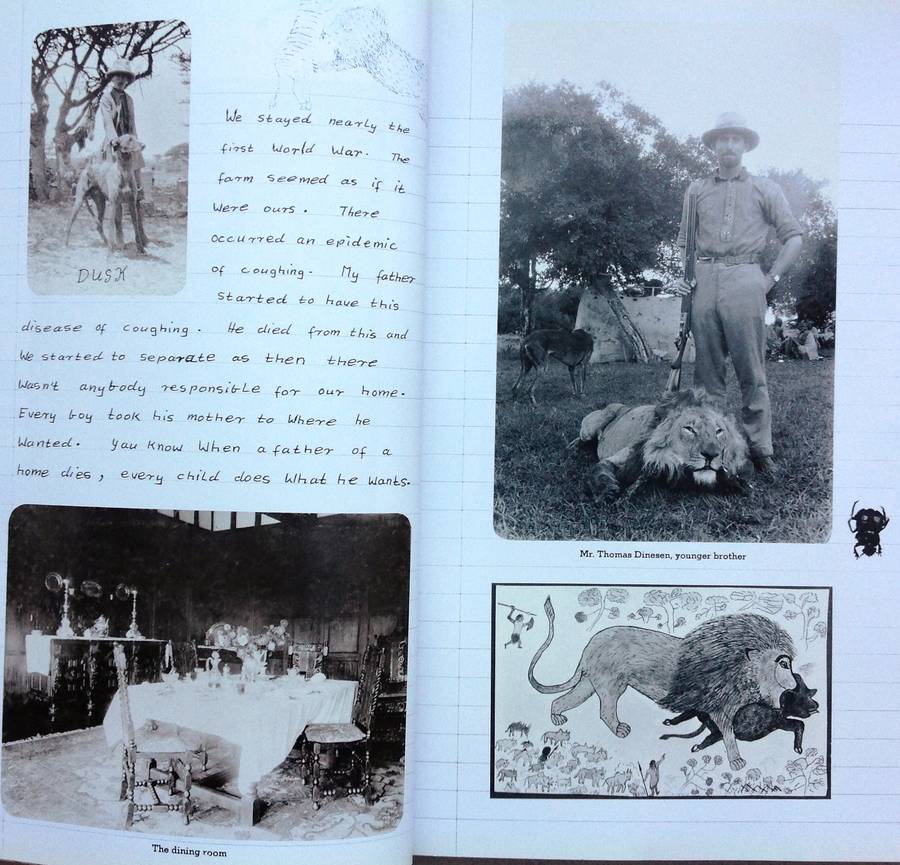 DUSK
We stayed nearly the
first World War. The
farm seemed as if it
were ours. There
occurred an epidemic
of coughing. My father
started to have this
disease of coughing. He died from this and
We started to separate as then there
wasn't anybody responsible for our home.
Every boy took his mother to where he
wanted. You know when a father of a
home dies, every child does what he wants.
The dining room
Mr. Thomas Dinesen, younger brother